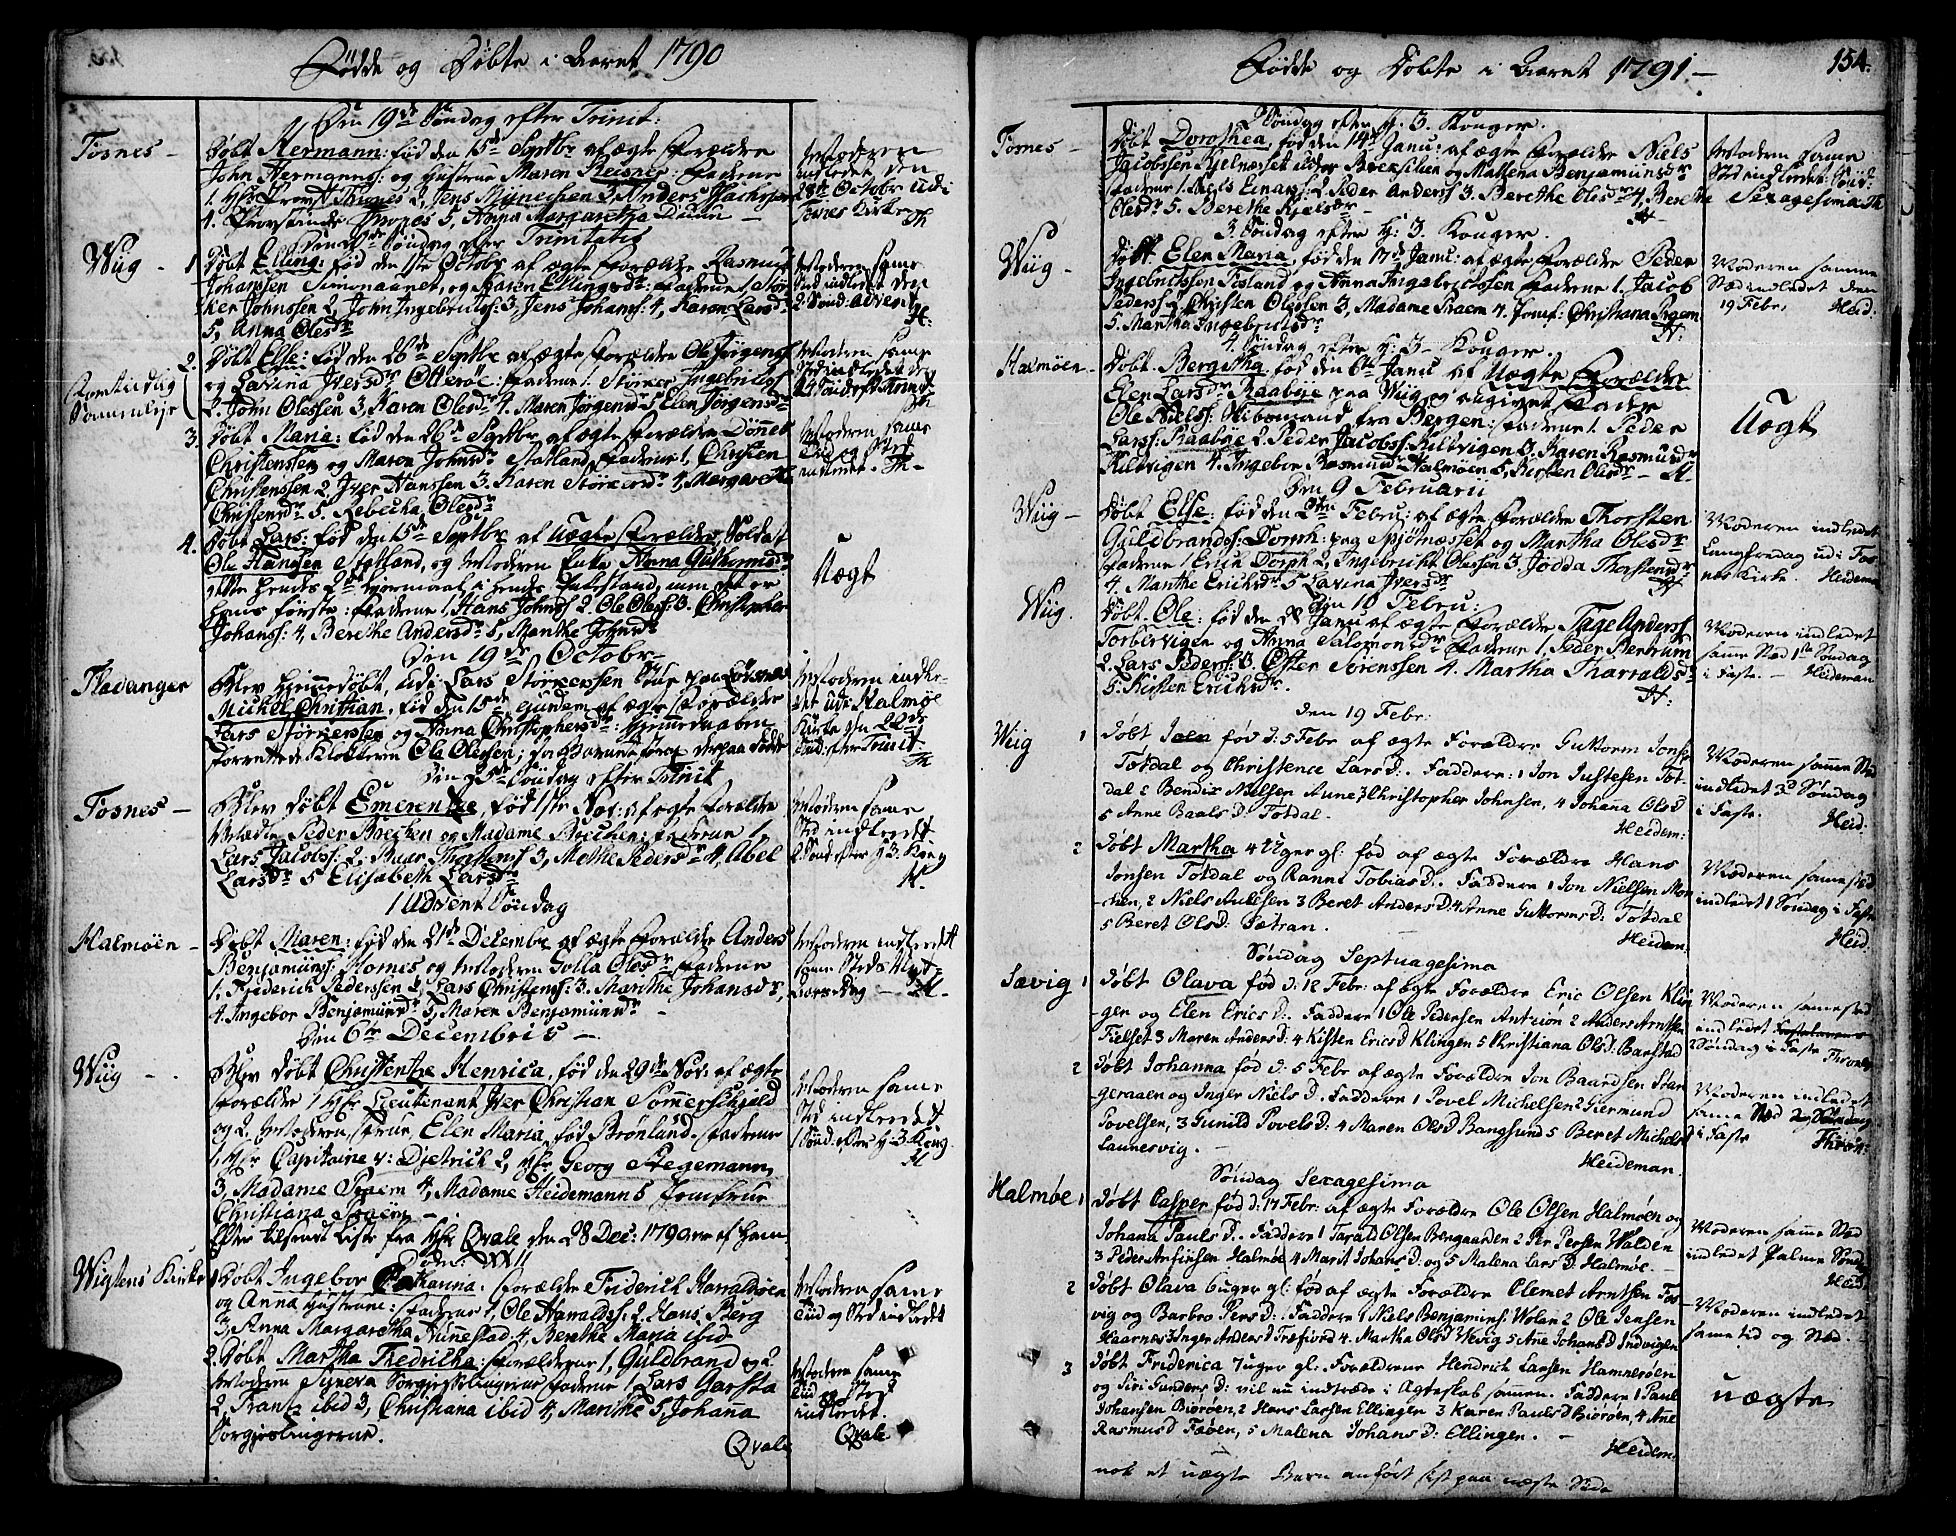 Födde og Döbte i Aaret 1790
Den 19de Söndag efter Trinit:
Fosnes - Döbt Hermann: fød den 15de Septbr af ægte Forældre
John Hermanns: og Hustrue Maren Reisner: Faddere
1. Hr Provst Thrones 2, Jens Münechen 3, Anders
4. Provstinde Thrones 5, Anna Margaretha Duun -
Moderen
indledet den
28de Octobr udi
Fosnes Kirke Th
Söndag efter Trinitatis
Wiig - 1 Döbt Elling: fød den 1ste Octobr af ægte Forældre Rasmus
Johansen Simonaanet, og Karen Ellingsdr: Faddere 1, Stör-
ker Johnssen 2, John Ingebrigtss: 3, Jens Johanss: 4, Karen Larsdr
5, Anna Olesdr
Moderen samme
Sted indledet den
2 Sönd: Advent
H:
2. Döbt Else: fød den 26de Septbr af ægte Forældre Ole Jörgenss
og Lavina Iversdr Otteröe: Faddere 1. Störker Ingebrigtss
2. John Olessen 3, Karen Olesdr 4. Maren Jörgensdr 5 Elen Jörgensdr
Moderen samme
3. Döbt Maria: fød den 26de Septbr af ægte Forældre Dönnes
Christenssen og Maren Johnsdr Statland, Faddere 1, Christen
Christenssen 2 Iver Hanssen 3. Karen Störkersdr 4, Margarethe
Christensdr 5. Rebecha Olesdr
Moderen samme
Tid og Sted
indledt. Th-
4. Döbt Lars: fød den 15de Septbr af Uægte Forældre, Soldat
Ole Hansen Statland, og Moderen Enke Anna Guthormsdr
dette hendes 2det Leiermaal i hendes Enkestand, men det er
hans förste: Faddere 1. Hans Johnss 2. Ole Oless: 3. Christopher
Johanss: 4, Berethe Andersdr 5, Marithe Johnsdr
Uægt
Den 19de Octobr -
Fladanger Blev hjemmedöbt, udi Lars Störkerssen Stue paa
Michel Christian, fød den 15de ejusdem af ægte Forældre
Lars Störkerssen og Anna Christophersdr: Hjemmedaaben
forrettede Klokkeren Ole Olessen;
Moderen indle-
det udi Halmöe
Kirke den 22de
Sönd: efter Trinit-
Th
Den 25de Söndag efter Trinit
Fosnes - Blev döbt Emerentze fød 1ste Nov: af ægte Forældre
Peder Brechen og Madame Brechen: Faddere 1,
Lars Jacobss: 2, Thorstenss 3, Methe Pedersdr 4, Abel
Larsdr 5 Elisabeth Larsdr
Moderen samme
Sted indledt
2 Sönd: efter H 3. Kong
H.
1 Advent Söndag
Halmöen - Döbt Maren: fød den 21de Decembr af ægte Forældre Anders
Benjaminss: Hornes og Moderen Golla Olesdr Faddere
1, Friderich Pederssen 2, Lars Christens: 3. Marithe Johansdr,
4. Ingebor Benjaminsdr 5, Maren Benjaminsdr -
Moderen indledt
samme Sted
Aarsdag - H-
Den 6te Decembris -
Wiig - Blev döbt Christentze Henrica, fød den 29de Nov: af ægte
Forældre 1 Hr Lieutenant Iver Christian Sommerschield
og 2. Moderen, Frue Elen Maria, fød Brönland. Faddere
1, Hr Capitaine v: Djetrich 2, Hr Georg Stegemann,
3, Madame Præm 4, Madame Heidemann 5 Jomfrue
Christiana Præm -
Moderen samme
Sted indledt
1 Sönd: efter H: 3 Kong
H
Efter tilsendt Liste fra Hr Qvale den 28 Dec: 1790 ere af ham
Dom: XXII
Wigstens Kirke 1 Döbt Ingebor Cathanna: Forældre Friderich Harraldsöen
og Anna Hustrue: Faddere 1, Ole Haraldss: 2. Hans Berg
3, Anna Margaretha Finnestad 4, Berethe Maria ibid
Moderen samme
Tid og Sted indledt
2. Döbt Martha Fredricha: Forældrene 1, Guldbrand og 2
Moderen Synøva Sorgjesslingerne Faddere 1 Lars Garsta
2, Frantz ibid 3, Christiana ibid 4, Marithe 5, Johanna
Sorgjeslingerne.
Qvale
Moderen samme
Tid og Sted
indledet.
Qvale
Födde og Döbte i Aaret 1791 -
154.
Söndag efter H. 3. Konger.
Fosnes - Döbt Dorothea, fød den 14de Janu: af ægte Forældre Niels
Jacobssen Sellnesset eller Brecksilien og Mallena Benjaminsdr
Faddere 1. Niels Einars: 2. Peder Anderss 3. Berethe Olesdr 4. Berethe
Olesdr 5. Berethe Kjelsdr -
H
Moderen samme
Sted indledet: Sönd:
Sexagesima Th
3. Söndag efter H: 3. Konger.
Wiig - Döbt Elen Maria, fød den 17de Janu: af ægte Forældre Peder
Ingebrictsson Fosland og Anna Ingebrictssen Faddere 1. Jacob
Pederss 2, Christen Olessen 3, Madame Præem 4. Jomf: Christiana Præem
5. Martha Ingebrictsdr
H:
Moderen samme
Sted indledet den
19 Febr. Heid:
4. Söndag efter H: 3 - Konger.
Halmöen - Döbt Bergitha fød den 6te Janu af Uægte Forældre
Elen Larsdr Raabye paa Wiig og udgivet Fader
Ole Nielss: Skibsmand fra Bergen: Faddere 1. Peder
Larss: Raabye 2. Peder Jacobss: Kilvigen 3. Karen Rasmusdr
Kilvigen 4. Ingebor Rasmusdr Halmöen 5. Kirsten Olesdr - H.
Uægt
Den 9 Februarii
Wiig - Döbt Else: fød den 2den Febru: af ægte Forældre Thorsten
Guldbrandss: Dorph: paa Spjötnæsset og Martha Olesdr
Faddere 1 Erich Dorph 2, Ingebricht Olessen 3, Jödda Thorstensdr
4. Marithe Erichsdr 5 Lavina Iversdr
H
Moderen indledet
Langfredag udi Fos-
nes Kirke. Heideman
Den 10 Febru:
Wiig. Döbt Ole: fød den 28 Janu af ægte Forældre, Tage Anderss
Torbervigen og Anna Salomonsdr Faddere 1. Peder Bertrum
2. Lars Pederss: 3. Öster Sörenssen 4. Martha Tharraldsdr
5. Kisten Erichsdr.
H:
Moderen indledet
samme Sted 1ste Söndag
i Faste. - Heideman
den 19 Febr:
Wiig 1 döbt Joen fød d: 5 Febr af ægte Forældre Guttorm Jonss
Tötdal og Christence LarsD:. Faddere: 1 Jon Justesen Töt-
dal 2 Bendix Nielsen Anne 3 Christopher Johnsen, 4 Johana OlsD
5 Anne BaalsD: Tötdal.
Heidem:
Moderen samme Sted
indledet 3de Söndag
i Faste. Heid.
2 döbt Martha 4 Uger gl: fød af ægte Forældre Hans
Jonsen Tötdal og Ranni TobiasD:. Faddere 1 Jon Nielsen Mor-
chen, 2 Niels Aulesen 3 Beret AndersD: 4 Anne GuttormsD: Tötdal
5 Beret OlsD: Sætran.
Heidem:
Moderen samme sted
indledet 1 Söndag i Faste
Heid.
Söndag Septuagesima
Sævig 1 döbt Olava fød d: 12 Febr: af ægte Forældre Eric Olsen Klin-
ger og Elen EricsD:. Faddere 1 Ole Pedersen Antzion 2 Anders Arntsen
Fielset 3 Maren AndersD: 4 Kisten EricsD Klingen 5 Christiana OlsD: Barstad
Moderen samme sted
indledet Fastelavens
Söndag i Faste Throne
2 döbt Johanna fød d: 5 Febr af ægte Forældre Jon Baardsen Stan-
geraaen og Inger NielsD. Faddere 1 Povel Michelsen 2 Giermund
Povelsen, 3 Gunild PovelsD: 4 Maren OlsD Bangsund 5 Beret Michels
Launervig. -
Heideman.
Moderen indledet
samme Sted 2 Söndag
i Faste Thrön:
Söndag Sexagesima
Halmöe 1 döbt Casper fød d: 17 Febr: af ægte Forældre Ole Olsen Halmöen og
Johana PaulsD:. Faddere 1 Tarald Olsen Bergaarden 2 Per Persen Walden
3 Peder Anfinsen Halmöe 4 Marit JohansD: og 5 Malena LarsD: Halmöe. -
Moderen samme Sted
indledet Palme Sönd
Heid
2 döbt Olava 6 uger gl: fød af ægte Forældre Clemet Arntsen Fos-
vig og Barbro PersD: Faddere 1 Niels Benjamins: Wolan 2 Ole Jensen
Haarnes 3 Inger AndersD Træfiord 4. Martha OlsD Kevig 5 Ane JohansD Indvigen
Moderen indledet
samme tid og Sted.
3 döbt Friderica 7 uger gl: Forældrene Hendrich Larsen Hamneröen
og Siri GundersD: vil nu indtræde i Ægteskab sammen. Faddere 1 Paul
Johansen Biöröen, 2 Hans Larsen Ellingen 3 Karen PaulsD Biöröen, 4 Ane
RasmusD Faöen, 5 Malena JohansD: Ellingen. -
Heidem:
uægte
nok et uægte Barn anfört sist paa næste Side